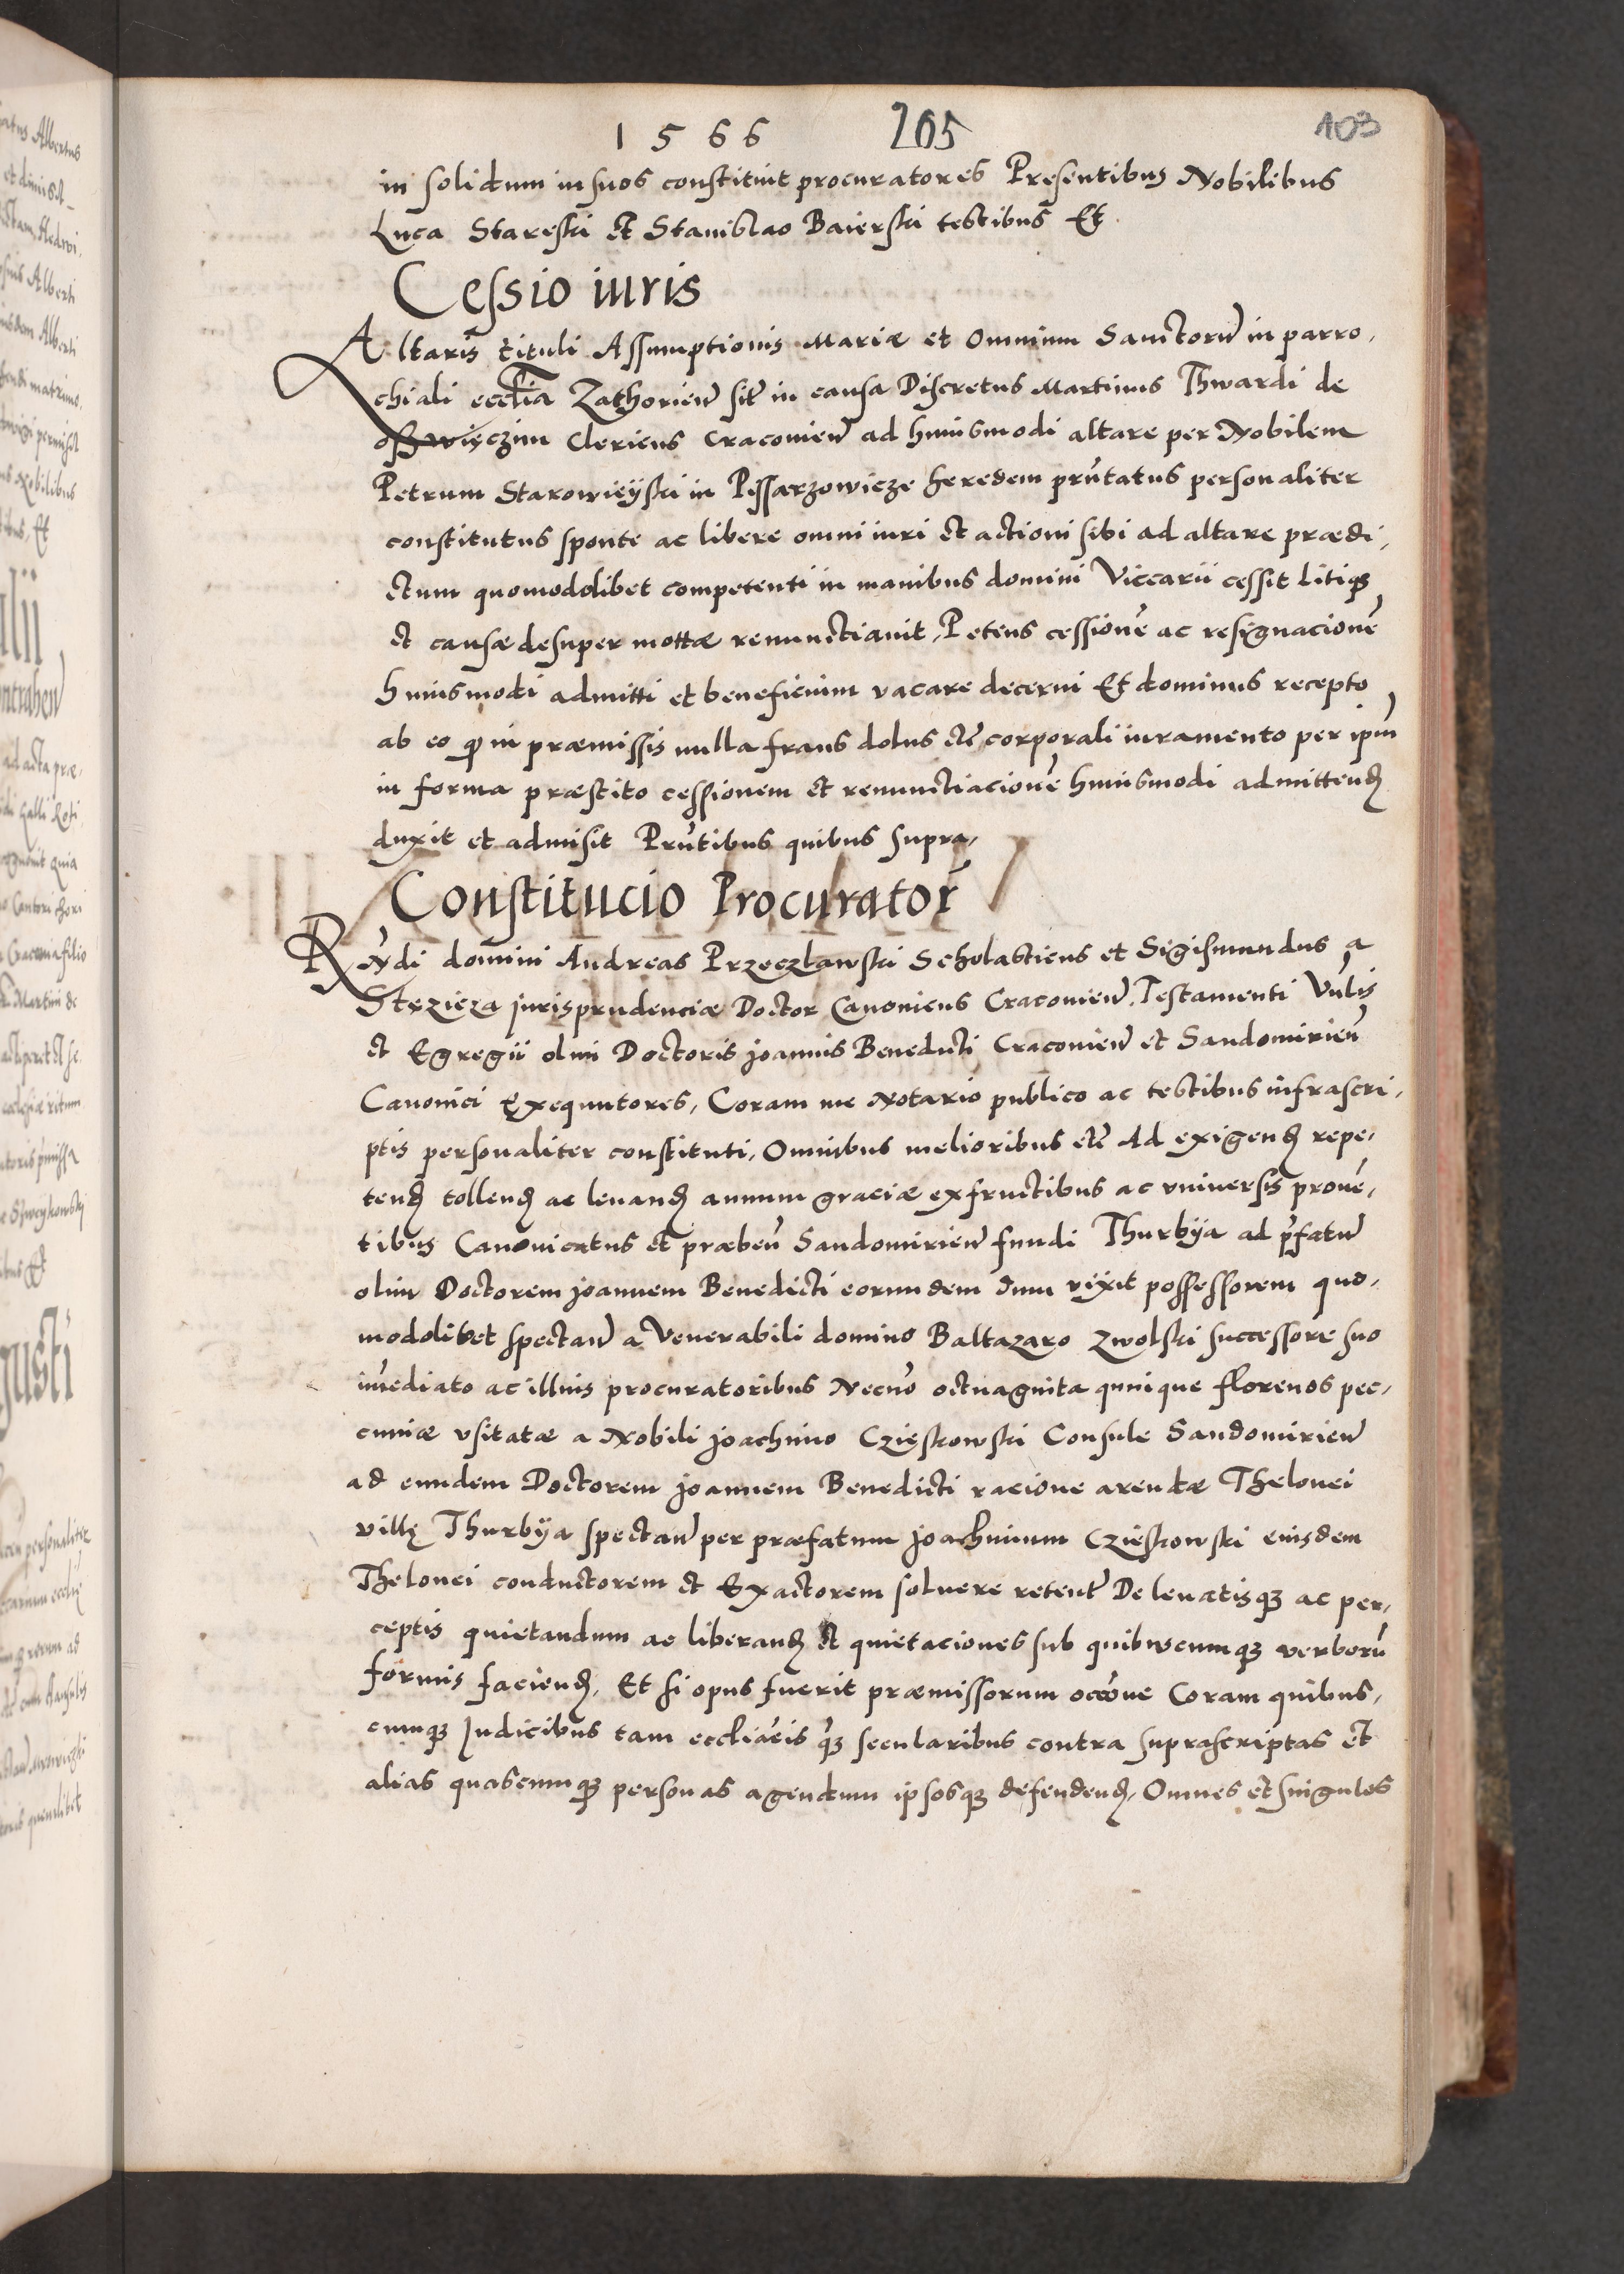 1566 205 103
in solidum in suos constituit procuratores Presentibus Nobilibus
Luca Stareski et Stanislao Baierski testibus Et
Cessio iuris
Altaris tituli Assumptionis Mariæ et Omnium Sanctorũ in parro,
chiali ecclīa Zathorieñ sit̃ in causa Discretus Martinus Thwardi de
Oszwięczim Clericus Cracovieñ ad huiusmodi altare per Nobilem
Petrum Starowieyski in Pissarzowicze heredem pñtatus personaliter
constitutus sponte ac libere omni iuri et actioni sibi ad altare prædi,
ctum quomodolibet competenti in manibus domini Viccarii cessit litiqȝ
et causæ desuper mottæ renunctiauit, Petens cessionẽ ac resignacionẽ
huiusmodi admitti et beneficium vacare decerni Et dominus recepto
ab eo ꝙ in præmissis nulla fraus dolus etc̃ corporali iuramento per ipm̃
in forma præstito cessionem et renunctiacionẽ huiusmodi admittenđ
duxit et admisit Pñtibus quibus supra,
Constitucio Procurator̃
Rñdi domini Andreas Przeczlawski Scholasticus et Sigismundus a
Stezicza jurisprudenciæ Doctor Canonicus Cracovieñ, Testamenti Vñlis
et Egregii olim Doctoris Joannis Benedicti Cracovieñ et Sandomirieñ
Canonici Exequutores, Coram me Notario publico ac testibus infrascri,
ptis personaliter constituti, Omnibus melioribus etc̃ Ad exigenđ repe,
tenđ tollenđ ac leuanđ annum graciæ ex fructibus ac vniversis prouẽ,
tibus Canonicatus et præbeñ Sandomirieñ fundi Thurbya ad p̃fatũ
olim Doctorem Joannem Benedicti eorundem dum vixit possessorem quo,
modolibet spectañ a Venerabili domino Baltazaro Zwolski successore suo
im̃ediato ac illius procuratoribus Necnõ octuaginta quinque florenos pec,
cuniæ vsitatæ a Nobili Joachimo Czieskowski Consule Sandomirieñ
ad eundem Doctorem Joannem Benedicti racione arendæ Thelonei
villę Thurbya spectañ per præfatum Joachimum Czieskowski eiusdem
Thelonei conductorem et Exactorem soluere retent̃ De leuatisqȝ ac per,
ceptis quietandum ac liberanđ et quietaciones sub quibuscumqȝ verborũ
formis facienđ, Et si opus fuerit præmissorum occõne Coram quibus,
cumqȝ Judicibus tam eccliãcis q̃ȝ secularibus contra suprascriptas et
alias quascumqȝ personas agendum ipsosqȝ defendenđ, Omnes et singulos